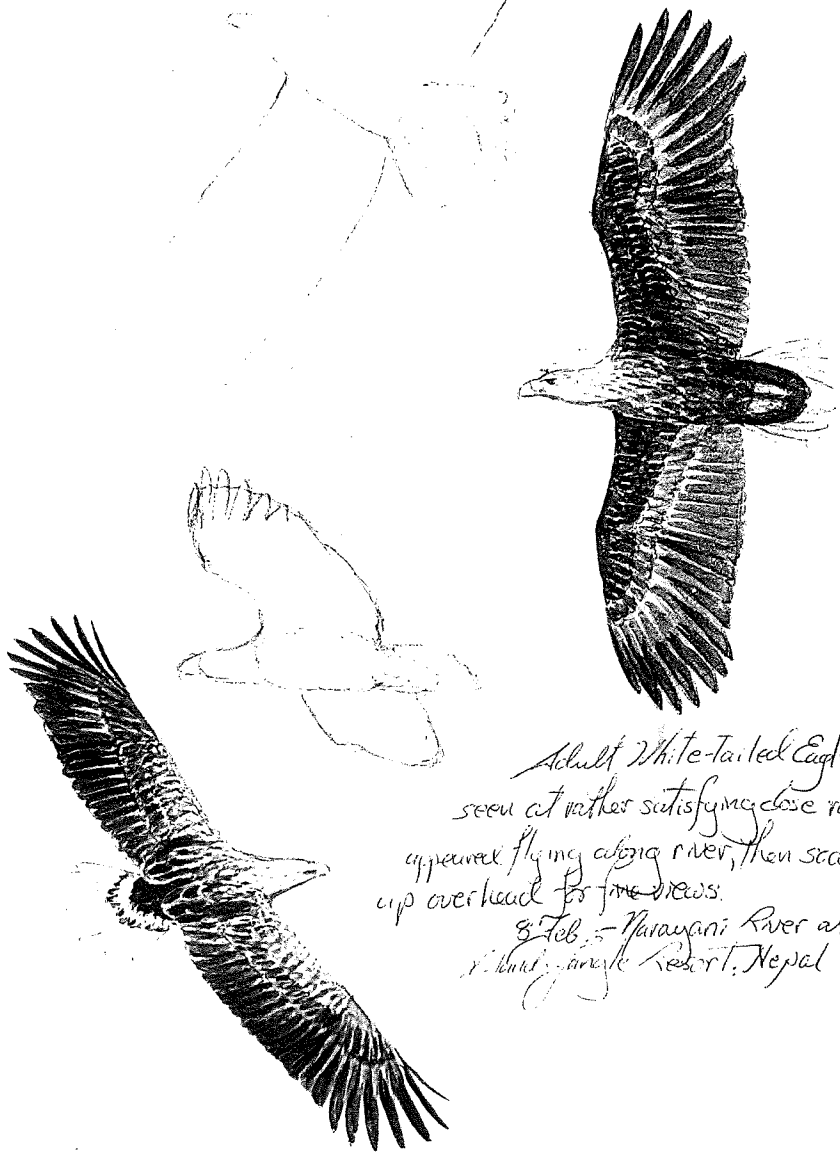 Adult White-Tailed Eagl
seen at rather satisfying close r
appeared flying along river, then soa
up overhead for fine views.
8 Feb - Narayani River a
Island Jungle Resort, Nepal